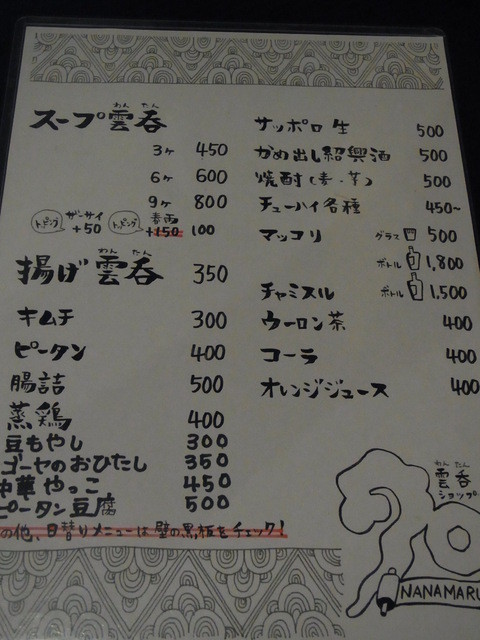 わん たん
スープ雲呑
3ヶ 450
6ヶ 600
9ヶ 800
トッピング ザーサイ +50 トッピング 春雨 +150 100
わん たん
揚げ雲呑 350
キムチ 300
ピータン 400
腸詰 500
蒸鶏 400
豆もやし 300
ゴーヤのおひたし 350
中華やっこ 450
ピータン豆腐 500
の他、日替りメニューは壁の黒板をチェック!
サッポロ生 500
かめ出し紹興酒 500
焼酎(麦・芋) 500
チューハイ各種 450~
マッコリ グラス 500
ボトル 1,800
チャミスル ボトル 1,500
ウーロン茶 400
コーラ 400
オレンジジュース 400
わん たん
雲呑
ショップ
NANAMARU